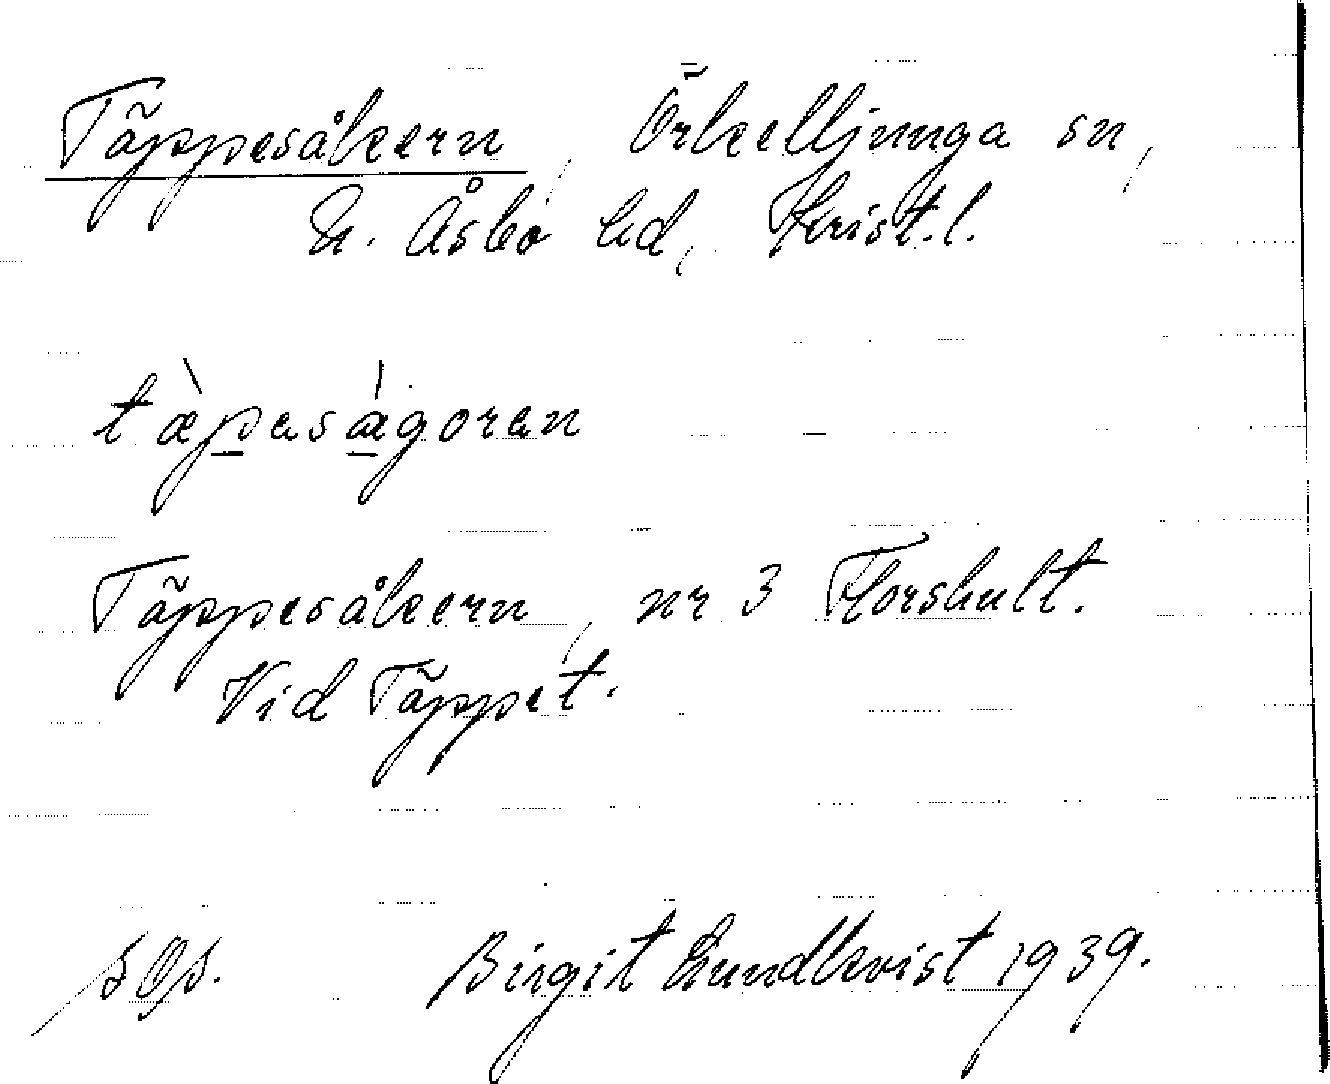 Täppesåkern, Örkelljunga sn,
N. Åsbo hd, Krist. l.
tæ̀pesàgoren
Täppesåkern, nr 3 Florshult.
Vid Täppet.
Birgit Lundkvist 1939.